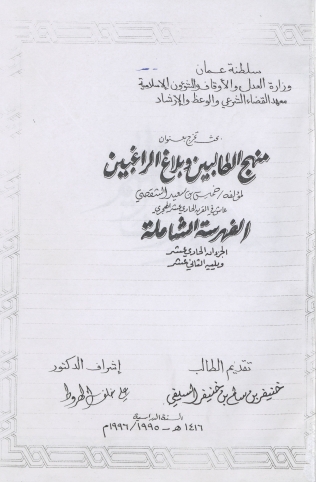 سلطنة عمان
وزارة العدل والأوقاف والشئون الإسلامية
معهد القضاء الشرعي والوعظ والإرشاد
بحث تخرج بعنوان
منهج الطالبين وبلاغ الراغبين
لمؤلفه/ خميس بن سعيد الشقصي
القرن الحادي عشر الهجري
الفهرسة الشاملة
الجزءان الحادي عشر
ويليه الثاني عشر
تقديم الطالب
إشراف الدكتور
خنيفر بن سالم بن خنيفر السيفي
علي خلف الهروط
السنة الدراسية
١٤١٦ هـ - ١٩٩٥ / ١٩٩٦م